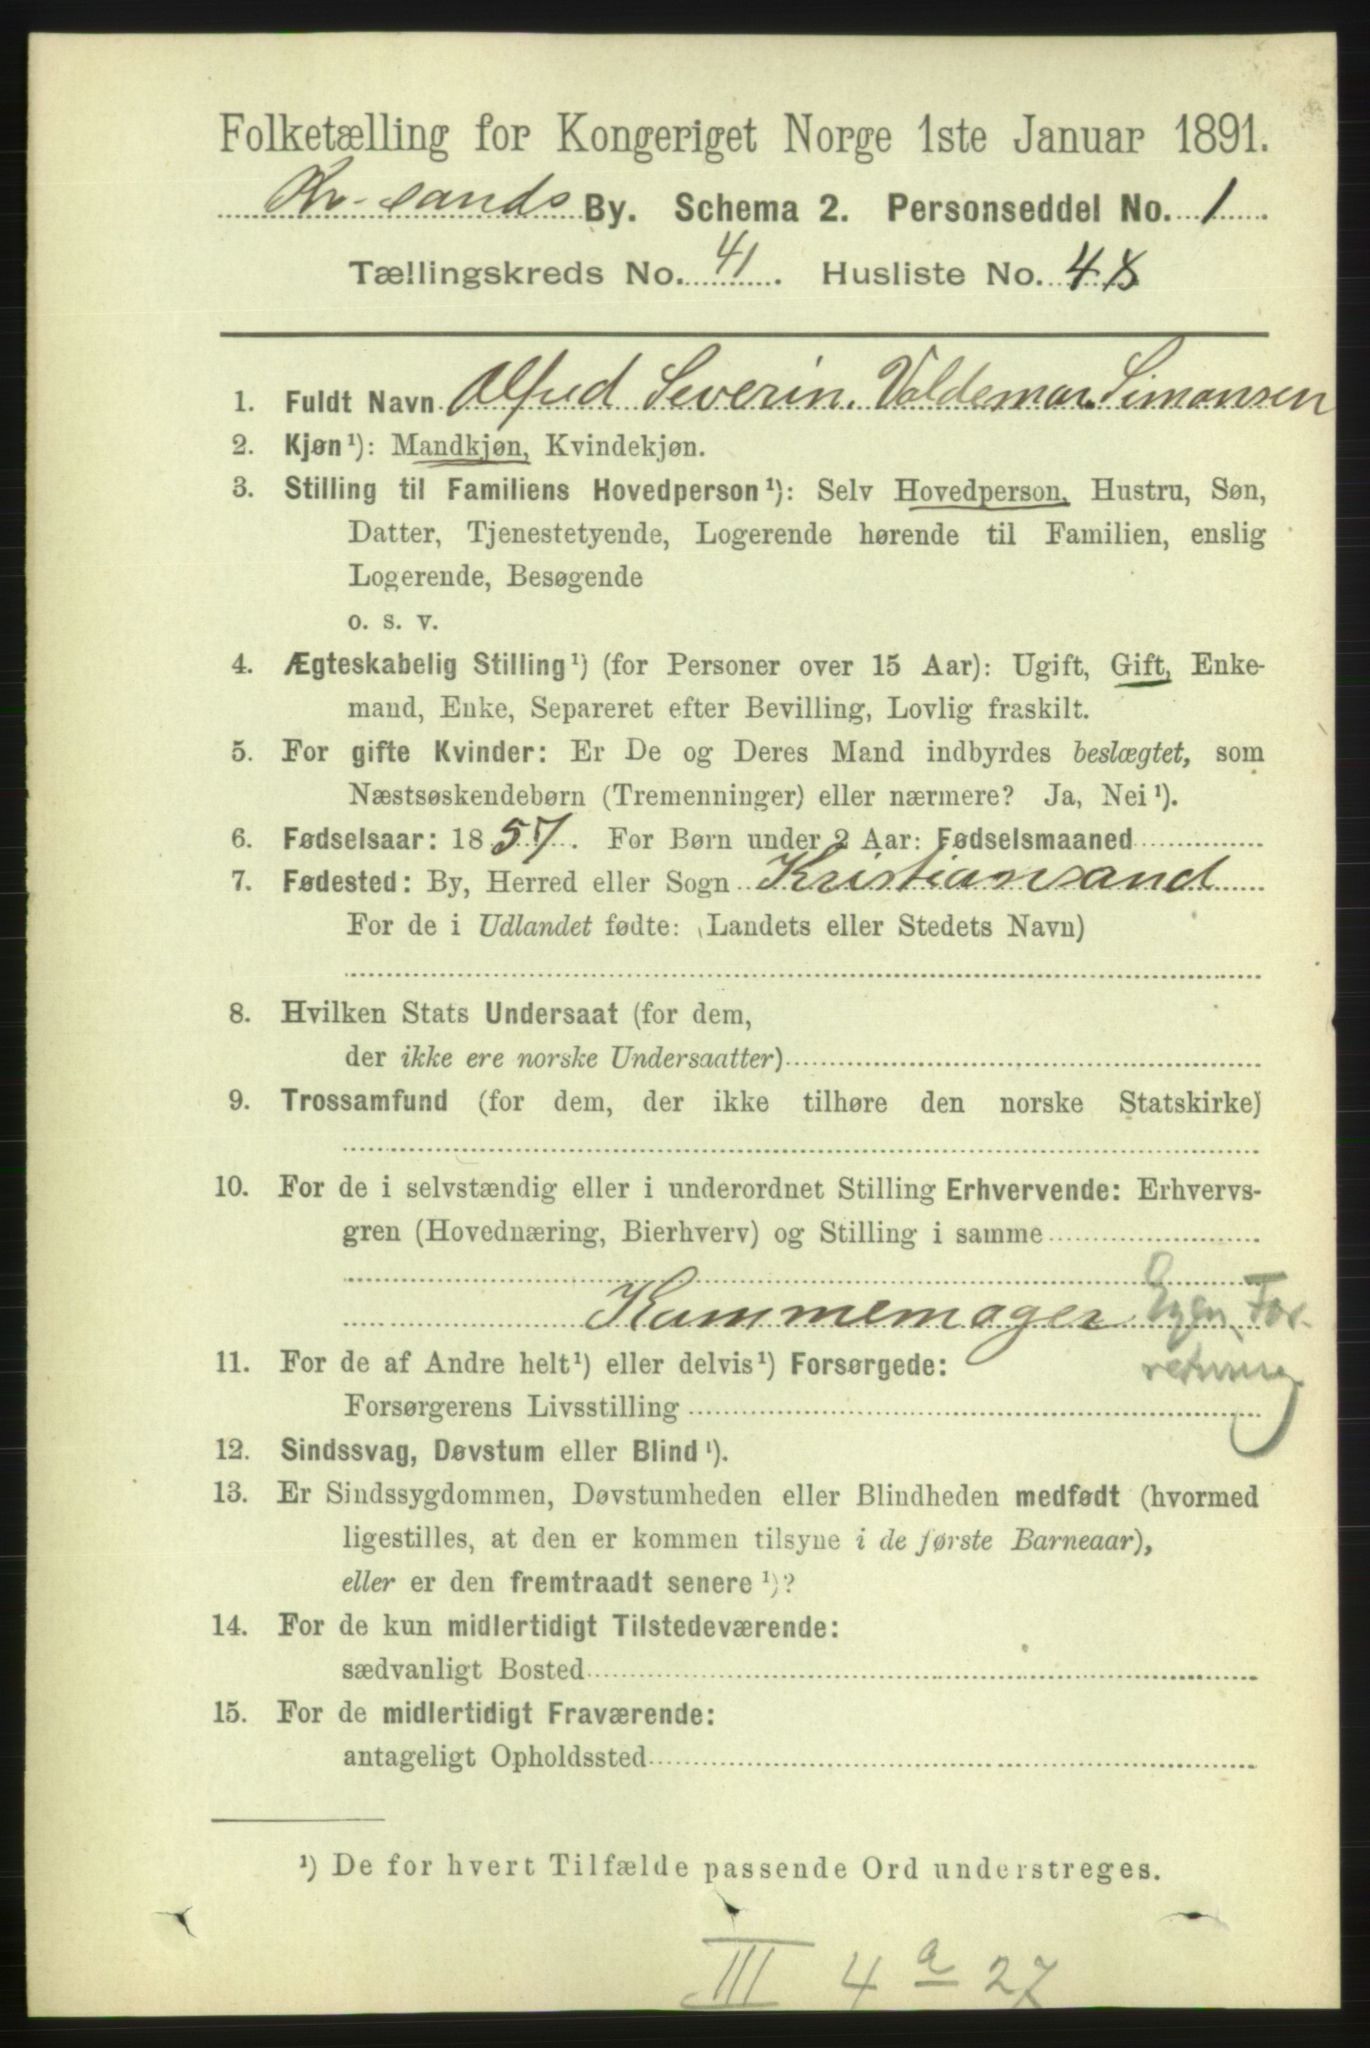 Folketælling for Kongeriget Norge 1ste Januar 1891.
Kr.sands By. Schema 2. Personseddel No. 1
Tællingskreds No. 41. Husliste No. 48
1. Fuldt Navn Alfred Severin Valdemar Simonsen
2. Kjøn¹): Mandkjøn, Kvindekjøn.
3. Stilling til Familiens Hovedperson¹): Selv Hovedperson, Hustru, Søn,
Datter, Tjenestetyende, Logerende hørende til Familien, enslig
Logerende, Besøgende
o. s. v.
4. Ægteskabelig Stilling¹) (for Personer over 15 Aar): Ugift, Gift, Enke-
mand, Enke, Separeret efter Bevilling, Lovlig fraskilt.
5. For gifte Kvinder: Er De og Deres Mand indbyrdes beslægtet, som
Næstsøskendebørn (Tremenninger) eller nærmere? Ja, Nei¹).
6. Fødselsaar: 1857. For Børn under 2 Aar: Fødselsmaaned
7. Fødested: By, Herred eller Sogn Kristiansand
For de i Udlandet fødte: (Landets eller Stedets Navn)
8. Hvilken Stats Undersaat (for dem,
der ikke ere norske Undersaatter)
9. Trossamfund (for dem, der ikke tilhøre den norske Statskirke)
10. For de i selvstændig eller i underordnet Stilling Erhvervende: Erhvervs-
gren (Hovednæring, Bierhverv) og Stilling i samme
Kammemager Egen For-
retning
11. For de af Andre helt¹) eller delvis¹) Forsørgede:
Forsørgerens Livsstilling
12. Sindssvag, Døvstum eller Blind¹).
13. Er Sindssygdommen, Døvstumheden eller Blindheden medfødt (hvormed
ligestilles, at den er kommen tilsyne i de første Barneaar),
eller er den fremtraadt senere¹)?
14. For de kun midlertidigt Tilstedeværende:
sædvanligt Bosted
15. For de midlertidigt Fraværende:
antageligt Opholdssted
¹) De for hvert Tilfælde passende Ord understreges.
III 4 a 27